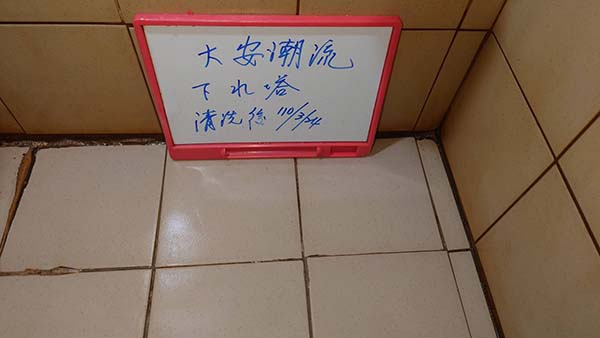 大安潮流
下水塔
清洗後 110/3/24